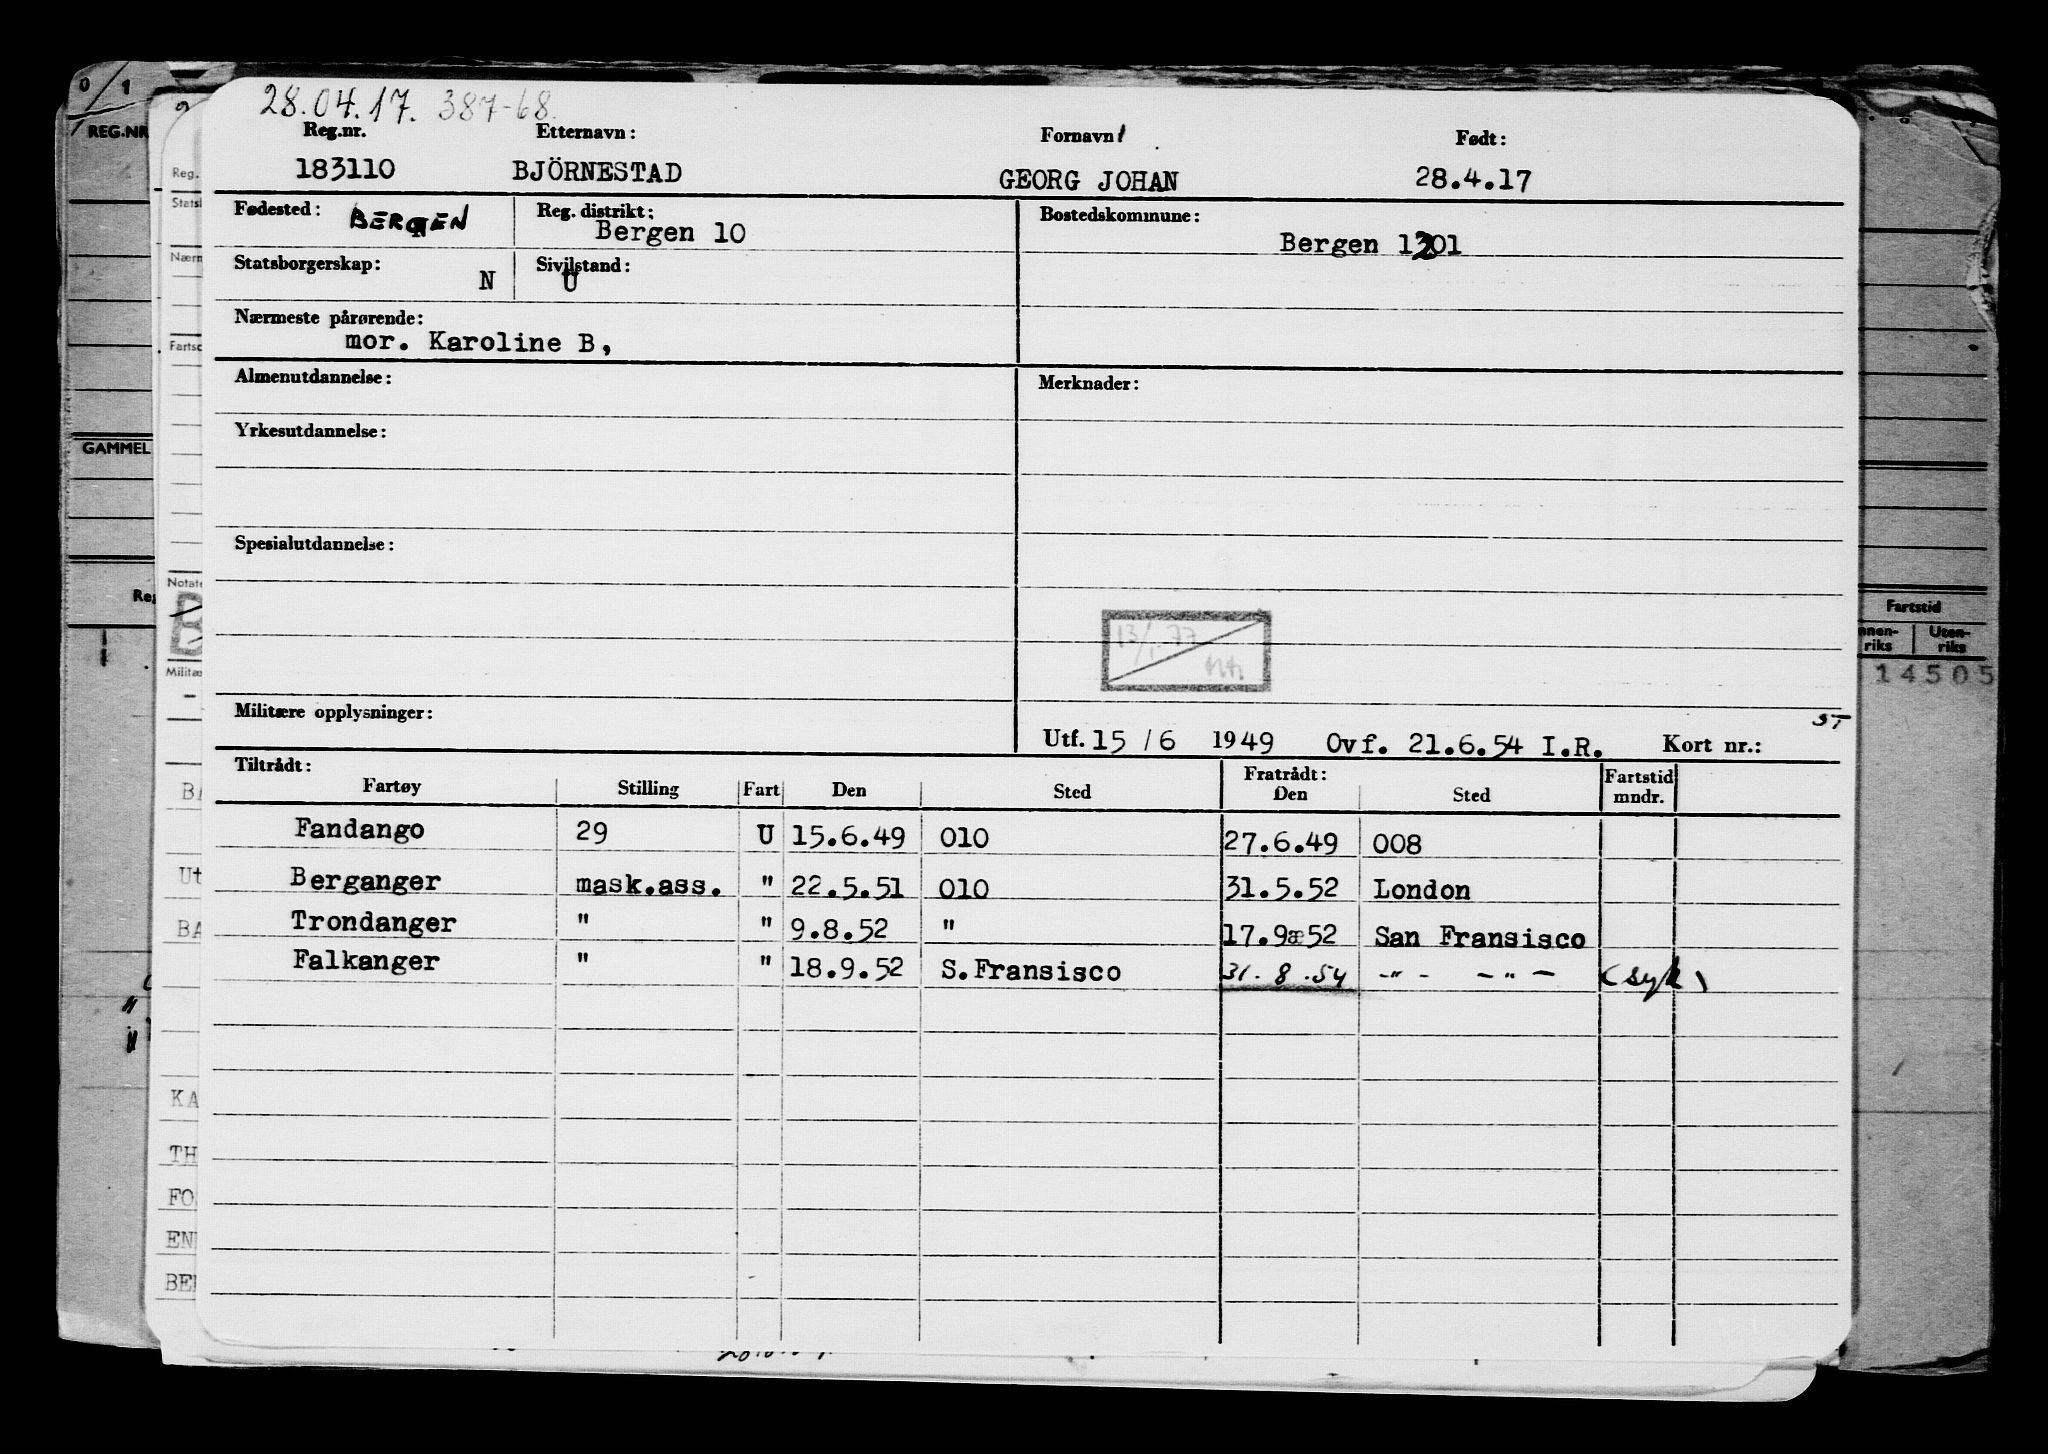 28.04.17. 387-68.
Reg.nr. Etternavn: Fornavn: Født:
183110 BJÖRNESTAD GEORG JOHAN 28.4.17
Fødested: BERGEN Reg. distrikt: Bergen 10 Bostedskommune: Bergen 1201
Statsborgerskap: N Sivilstand: U
Nærmeste pårørende:
mor. Karoline B,
Almenutdannelse: Merknader:
Yrkesutdannelse:
Spesialutdannelse:
13/1 77
Militære opplysninger:
Utf. 15 / 6 1949 Ovf. 21.6.54 I.R. Kort nr.:
Tiltrådt: Fratrådt: Fartstid
Fartøy Stilling Fart Den Sted Den Sted mndr.
Fandango 29 U 15.6.49 010 27.6.49 008
Berganger mask.ass. " 22.5.51 010 31.5.52 London
Trondanger " " 9.8.52 " 17.9æ52 San Fransisco
Falkanger " " 18.9.52 S.Fransisco 31.8.54 -"- -"- (syk)
REG.NR
GAMMEL
Reg.
Notate
Fartstid
Uten-
riks riks
14505
KA
TH
FO